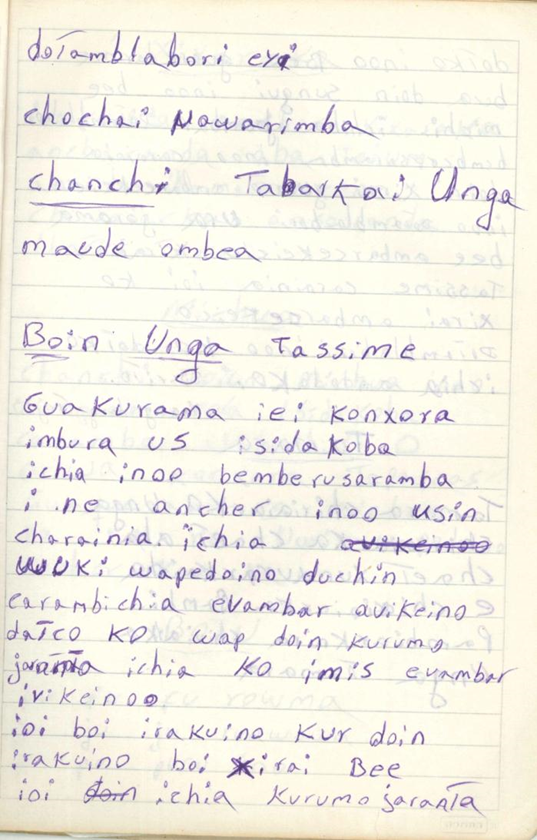 doTamblabori eyi
chochai Nowarimba
chanchi Tabarkai Unga
maude ombea
Boin Unga Tassime
Guakurama iei konxora
imbura us isidakoba
ichia inoo bemberusaramba
i ne ancher inoo usin
charainia ichia avikeinoo
uuuki wapedaino duchin
earambichia evambar avikeino
daTco ko wap doin kurumo
jaranTa ichia ko imis evambar
ivikeinoo
ioi boi irakuino kur doin
irakuino boi xirai Bee
ioi doin ichia kurumo jaranTa